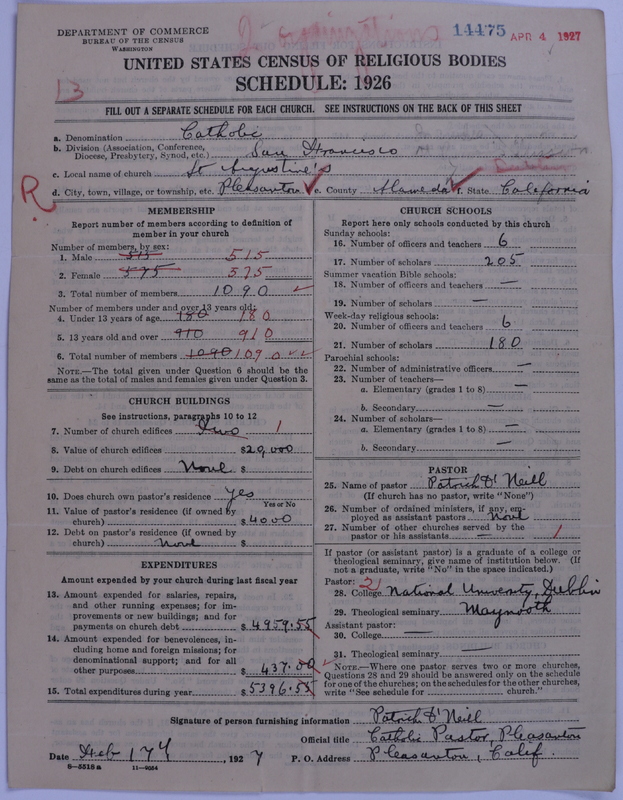 DEPARTMENT OF COMMERCE
BUREAU OF THE CENSUS
WASHINGTON
14475 APR 4 1927
UNITED STATES CENSUS OF RELIGIOUS BODIES
SCHEDULE: 1926
13
FILL OUT A SEPARATE SCHEDULE FOR EACH CHURCH. SEE INSTRUCTIONS ON THE BACK OF THIS SHEET
a. Denomination Catholic
b. Division (Association, Conference, Diocese, Presbytery, Synod, etc.) San Francisco
c. Local name of church St Augustine's
R
d. City, town, village, or township, etc. Pleasanton e. County Alameda f. State California
MEMBERSHIP
Report number of members according to definition of
member in your church
Number of members, by sex:
1. Male 515 515
2. Female 575 575
3. Total number of members 1090
Number of members under and over 13 years old:
4. Under 13 years of age 180 180
5. 13 years old and over 910 910
6. Total number of members 1090 1090
NOTE.—The total given under Question 6 should be
the same as the total of males and females given under Question 3.
CHURCH BUILDINGS
See instructions, paragraphs 10 to 12
7. Number of church edifices Two 1
8. Value of church edifices $20,000
9. Debt on church edifices None $
10. Does church own pastor's residence Yes
Yes or No
11. Value of pastor's residence (if owned by
church) $4000
12. Debt on pastor's residence (if owned by
church) None $
EXPENDITURES
Amount expended by your church during last fiscal year
13. Amount expended for salaries, repairs,
and other running expenses; for im-
provements or new buildings; and for
payments on church debt $4959.55
14. Amount expended for benevolences, in-
cluding home and foreign missions; for
denominational support; and for all
other purposes $437.00
15. Total expenditures during year $5396.55
CHURCH SCHOOLS
Report here only schools conducted by this church
Sunday schools:
16. Number of officers and teachers 6
17. Number of scholars 205
Summer vacation Bible schools:
18. Number of officers and teachers —
19. Number of scholars —
Week-day religious schools:
20. Number of officers and teachers 6
21. Number of scholars 180
Parochial schools:
22. Number of administrative officers —
23. Number of teachers—
a. Elementary (grades 1 to 8) —
b. Secondary —
24. Number of scholars—
a. Elementary (grades 1 to 8) —
b. Secondary —
PASTOR
25. Name of pastor Patrick O'Neill
(If church has no pastor, write "None")
26. Number of ordained ministers, if any, em-
ployed as assistant pastors None
27. Number of other churches served by the
pastor or his assistants — 1
If pastor (or assistant pastor) is a graduate of a college or
theological seminary, give name of institution below. (If
not a graduate, write "No" in the space indicated.)
Pastor: 2
28. College National University, Dublin
29. Theological seminary Maynooth
Assistant pastor:
30. College —
31. Theological seminary —
NOTE.—Where one pastor serves two or more churches,
Questions 28 and 29 should be answered only on the schedule
for one of the churches; on the schedules for the other churches,
write "See schedule for church."
Signature of person furnishing information Patrick O'Neill
Official title Catholic Pastor, Pleasanton
Date Feb 17th, 1927 P. O. Address Pleasanton, Calif.
8—5518 a 11—9054